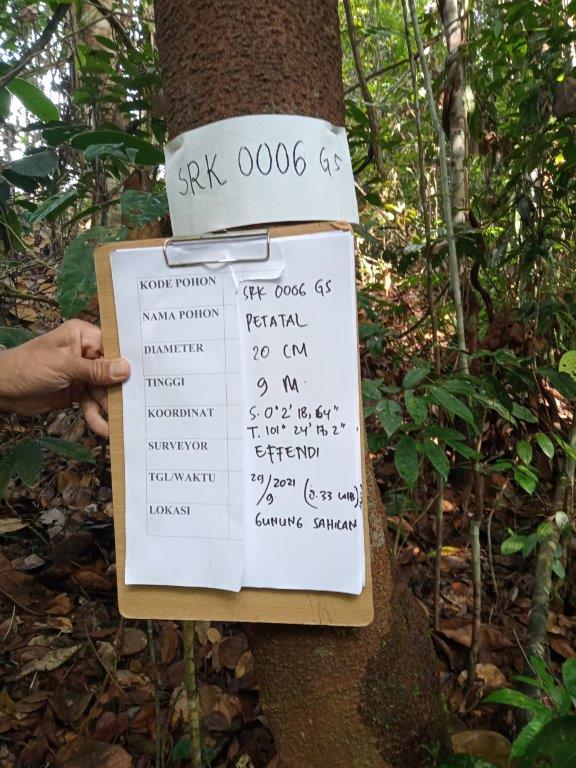 SRK 0006 GS
KODE POHON SRK 0006 GS
NAMA POHON PETATAL
DIAMETER 20 CM
TINGGI 9 M
KOORDINAT S. 0° 2' 18, 64"
T. 101° 24' 17, 2"
SURVEYOR EFFENDI
TGL/WAKTU 29/9/2021 WIB)
LOKASI GUNUNG SAHILAN